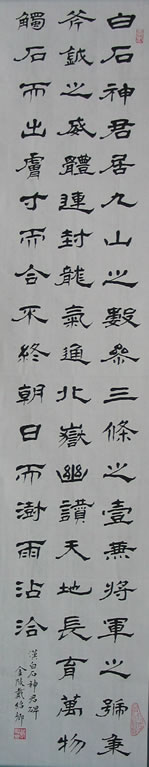 白石神君居九山之數參三條之壹兼將軍之號秉
斧鉞之威體連封龍氣通北嶽幽讚天地長育萬物
觸石而出膚寸而合不終朝日而澍雨沾洽
漢白石神君碑
金陵戴